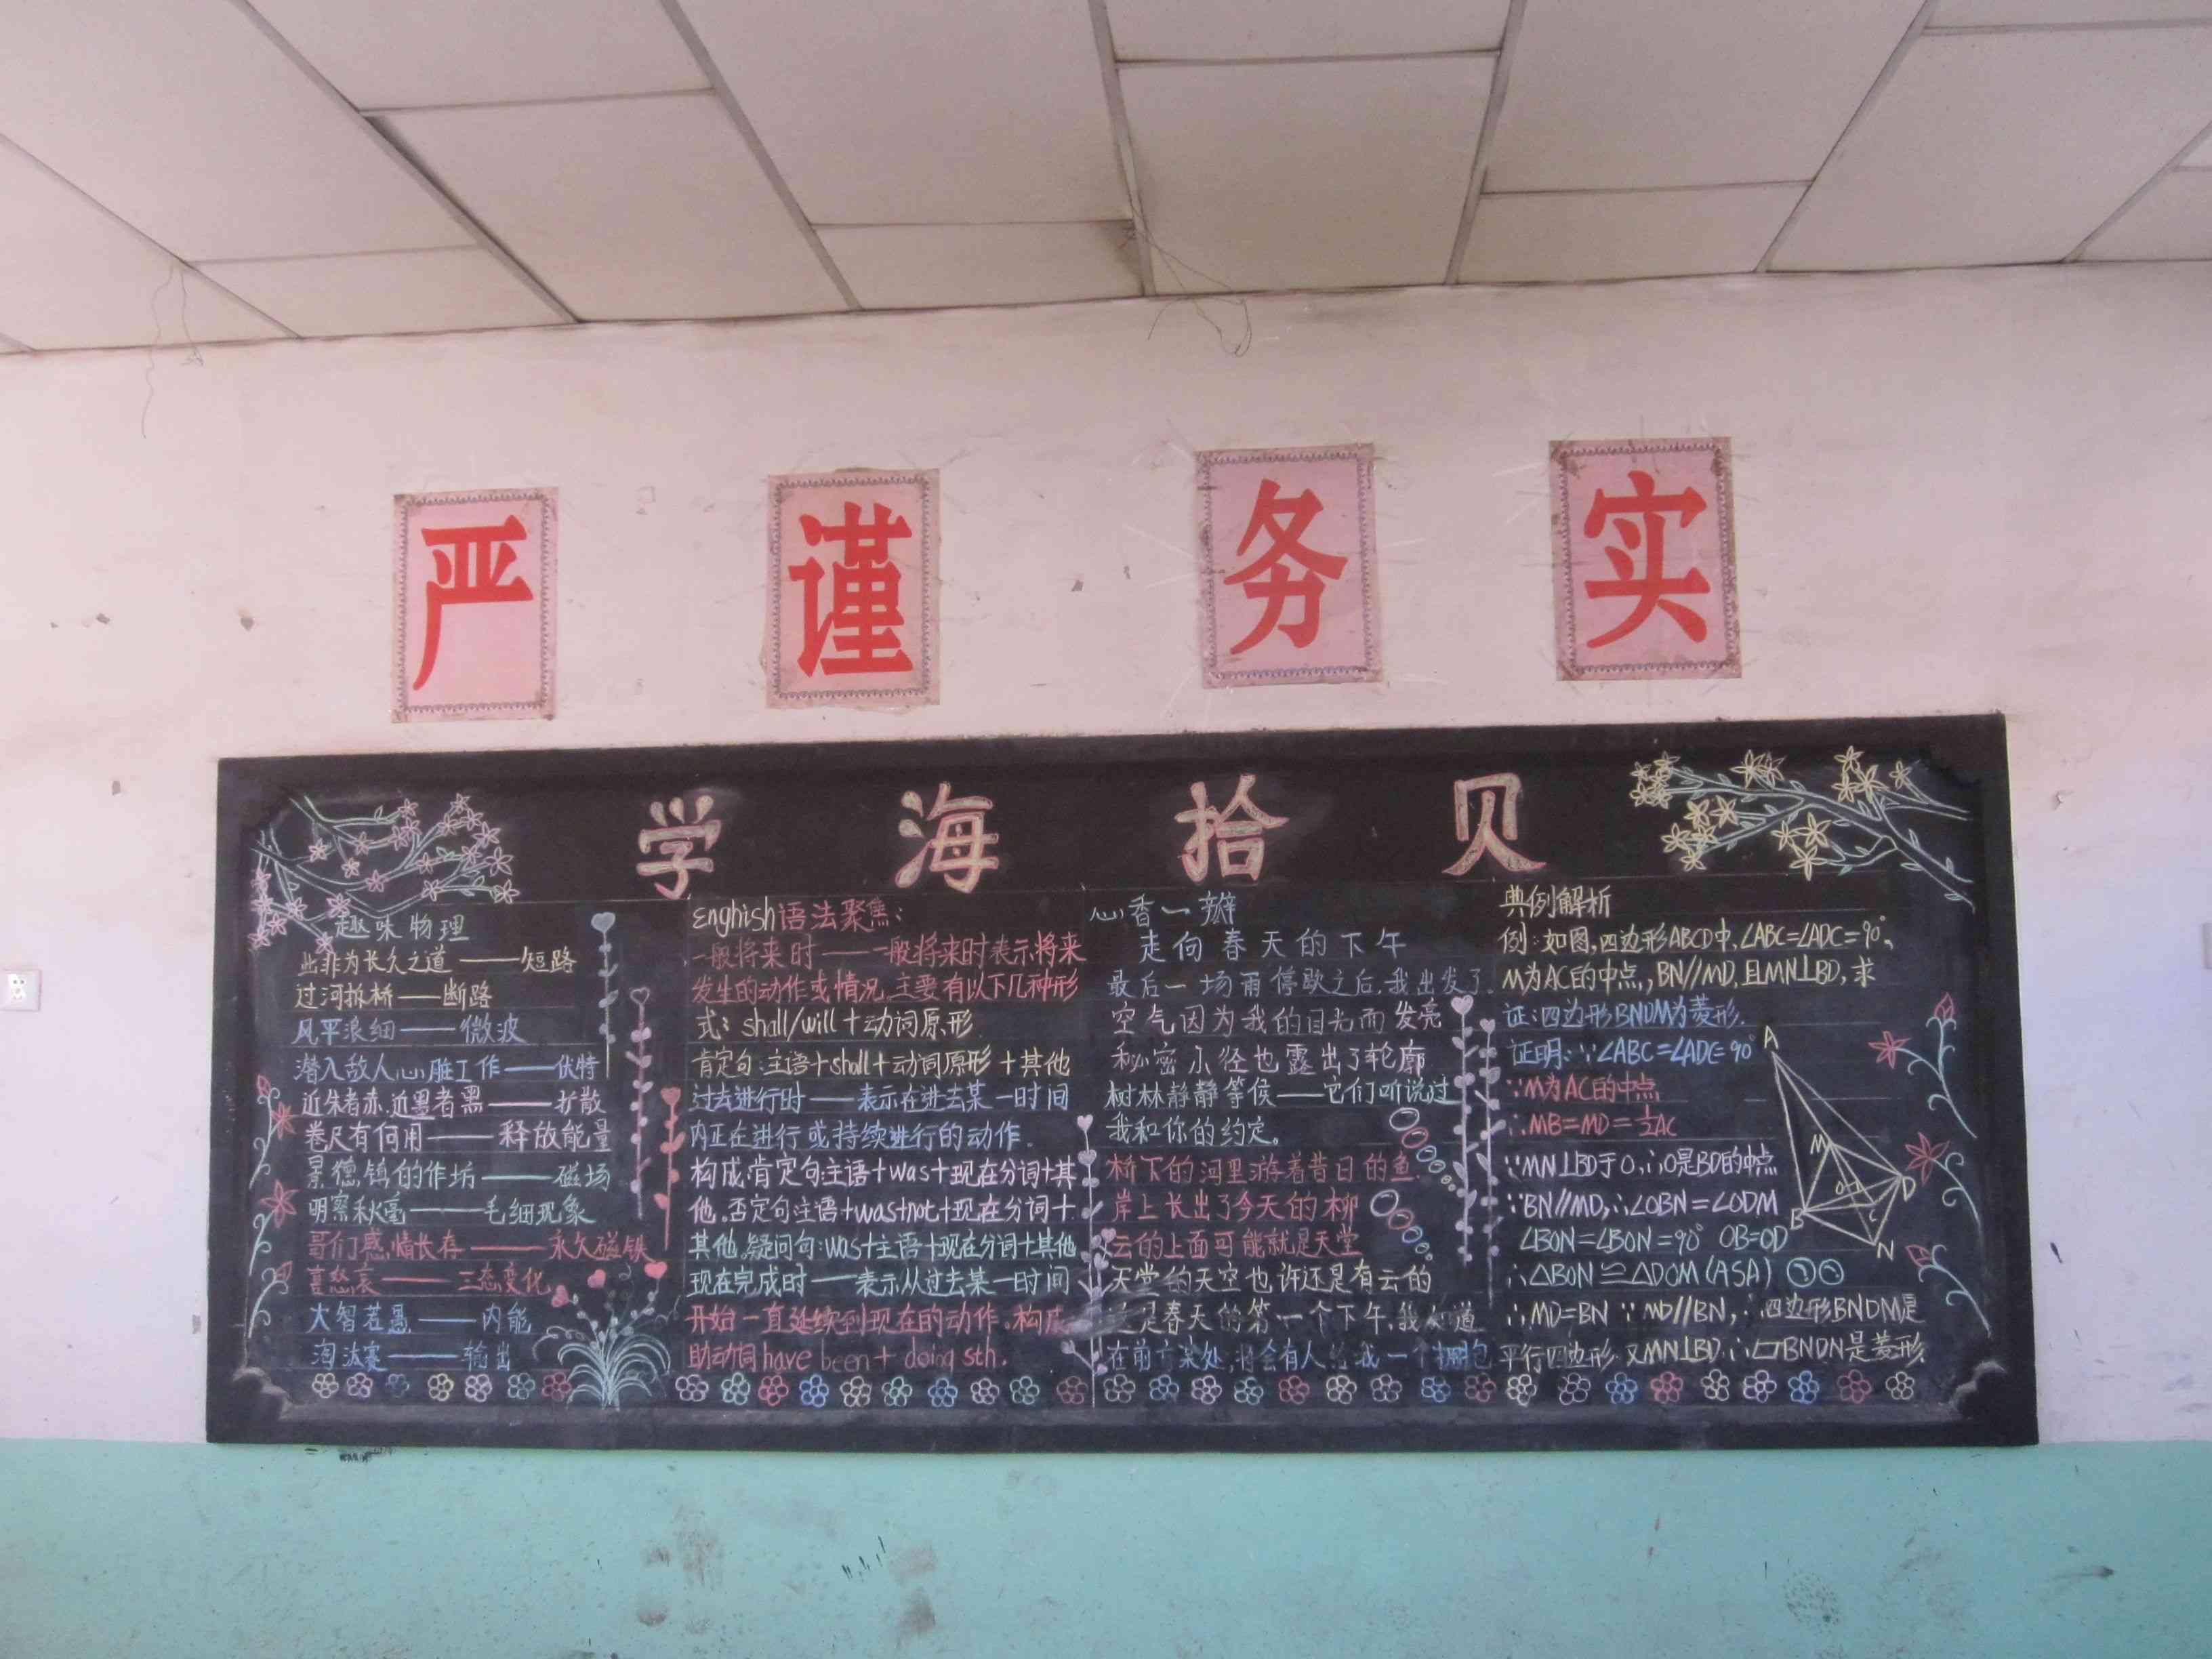 严 谨 务 实
学 海 拾 贝
趣味物理
此非为长久之道——短路
过河拆桥——断路
风平浪细——微波
潜入敌人心脏工作——伏特
近朱者赤,近墨者黑——扩散
卷尺有何用——释放能量
景德镇的作坊——磁场
明察秋毫——毛细现象
哥们感情长存——永久磁铁
喜怒哀——三态变化
大智若愚——内能
淘汰赛——输出
Enghish语法聚焦:
一般将来时——一般将来时表示将来
发生的动作或情况,主要有以下几种形
式: shall/will+动词原形
肯定句:主语+shall+动词原形+其他
过去进行时——表示在进去某一时间
内正在进行或持续进行的动作.
构成:肯定句:主语+was+现在分词+其
他.否定句:主语+was+not+现在分词+
其他.疑问句:was+主语+现在分词+其他
现在完成时——表示从过去某一时间
开始一直延续到现在的动作。构成
助动词have been+doing sth.
心香一瓣
走向春天的下午
最后一场雨停歇之后,我出发了.
空气因为我的目光而发亮
秘密小径也露出了轮廓
树林静静等候——它们听说过
我和你的约定。
桥下的河里游着昔日的鱼.
岸上长出了今天的柳
云的上面可能就是天堂
天堂的天空也许还是有云的
这是春天的第一个下午,我知道
在前方某处,将会有人给我一个拥抱
典例解析
例:如图,四边形ABCD中,∠ABC=∠ADC=90°,
M为AC的中点,BN//MD,且MN⊥BD,求
证:四边形BNDM为菱形.
证明:∵∠ABC=∠ADC=90°
∵M为AC的中点
∴MB=MD=½AC
∵MN⊥BD于O,∴O是BD的中点
∵BN//MD,∴∠OBN=∠ODM
∠BON=∠BON=90° OB=OD
∴△BON≌△DOM(ASA)
∴MD=BN ∵MD//BN,∴四边形BNDM是
平行四边形.又MN⊥BD∴▱BNDN是菱形.
A
M
O
D
B
C
N